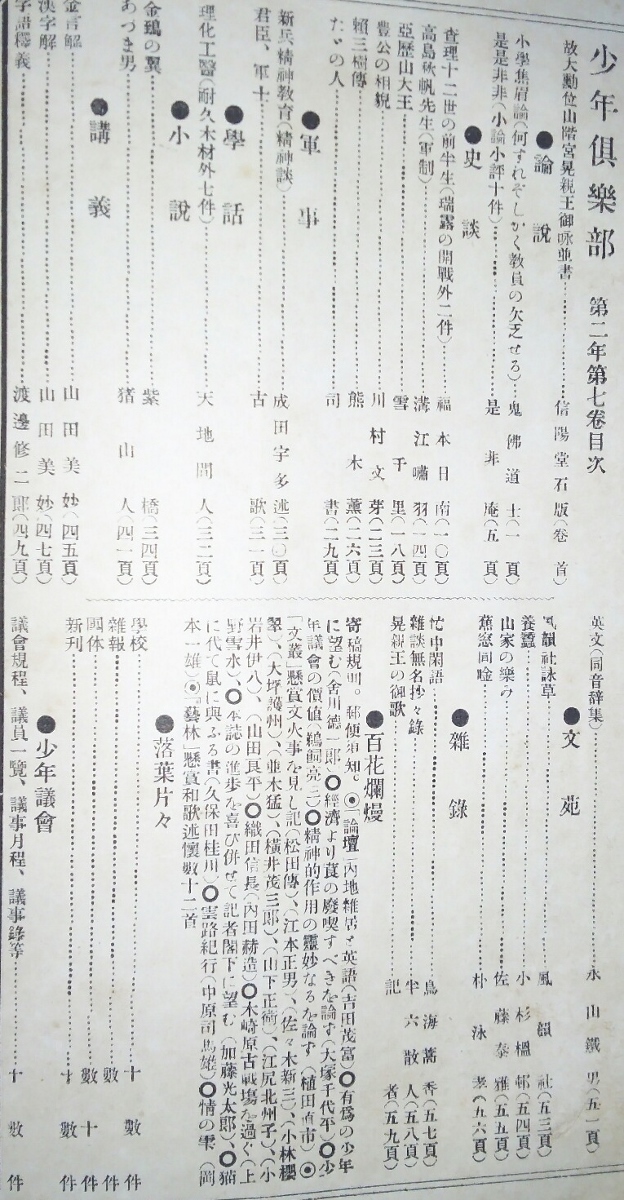 少年倶樂部 第二年第七卷目次
故大勳位山階宮晃親王御咏並書……信陽堂石版(卷首)
●論說
小學焦眉論(何すれぞしかく教員の欠乏せる)…鬼佛道士(一頁)
是是非非(小論小評十件)……是非庵(五頁)
●史談
查理十二世の前半生(瑞露の開戰外二件)……福本日南(一〇頁)
高島秋帆先生(軍制)……溝江嘯羽(一四頁)
亞歷山大王……雪千里(一八頁)
豐公の相貌……川村文芽(二三頁)
賴三樹傳……熊木薰(二六頁)
たゞの人……司書(二九頁)
●軍事
新兵精神教育(精神談)……成田宇多述(三〇頁)
君臣、軍士……古歌(三一頁)
●學話
理化工醫(耐久木材外七件)……天地間人(三二頁)
●小說
金鵄の翼……紫橋(三四頁)
あづま男……猪山人(四一頁)
●講義
金言解……山田美妙(四五頁)
漢字解……山田美妙(四七頁)
字語釋義……渡邊修二郎(四九頁)
英文(同音辞集)……永山鐵男(五一頁)
●文苑
風韻社詠草……風韻社(五三頁)
養蠶……小杉榲邨(五四頁)
山家の樂み……佐藤泰雅(五五頁)
蕉窓同唫……朴泳孝(五六頁)
●雜錄
忙中閑語……鳥海蒿香(五七頁)
雜談無名抄々錄……半六散人(五八頁)
晃親王の御歌……記者(五九頁)
●百花爛熳
寄稿規則。郵便須知。◎「論壇」內地雜居と英語(吉田茂富)○有爲の少年
に望む(舍川德一郎)○經濟より莨の廢喫すべきを論ず(大塚千代平)○少
年議會の價値(鵜飼亮三)○精神的作用の靈妙なるを論ず(植田直市)◎
「文叢」懸賞文火事を見し記(松田傳)、(江本正男)、(佐々木新三)、(小林櫻
翠)、(大坪護州)、(並木猛)、(橫井茂三郎)、(山下正衛)、(江尻北州子)、(小
岩井伊八)、(山田良平)○織田信長(內田赫造)○木崎原古戰塲を過ぐ(上
野雪水)、○本誌の進歩を喜び併せて記者閣下に望む(加藤光太郎)、○猫
に代て鼠に與ふる書(久保田桂川)○雲路紀行(中原司馬雄)○情の雫(岡
本一雄)◎「藝林」懸賞和歌述懷數十二首
●落葉片々
學校……十數件
雜報……數件
國体……十件
新刊……十數件
●少年議會
議會規程、議員一覽、議事月程、議事錄等……十數件